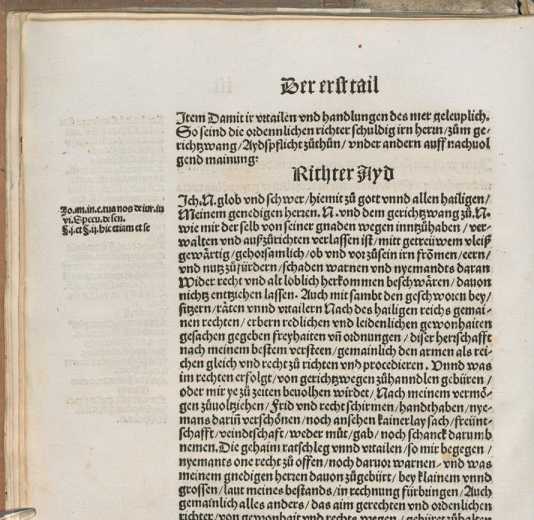 Der erst tail
Item Damit ir vrtailen vnd handlungen des mer geleuplich.
So seind die ordennlichen richter schuldig irn herrn/zům ge-
richtzwang/Aydspflicht zůthůn/vnder andern auff nachuol
gend mainung:
Richter Ayd
Jo.an.in.c.tua nos de iur.iu
vi.Specu.de sen.
§.j.et §.ij.hic etiam et se
Ich.N.glob vnd schwer/hiemit zů gott vnnd allen hailigen/
Meinem genedigen herren. N.vnd dem gerichtzwang zů.N.
wie mir der selb von seiner gnaden wegen inntzůhaben/ver-
walten vnd außzůrichten verlassen ist/mitt getreüwem vleiß
gewärtig/gehorsamlich/ob vnd vor zůsein irn frömen/eern/
vnd nutz zůfürdern/schaden warnen vnd nyemandts daran
Wider recht vnd alt loblich herkommen beschwären/dauon
nichtz entziehen lassen. Auch mit sambt den geschwornen bey/
sitzern/räten vnnd vrtailern Nach des hailigen reichs gemai-
nen rechten/erbern redlichen vnd leidenlichen gewonhaiten
gesachen gegeben freyhaiten vn̄ ordnungen/diser herrschafft
nach meinem bestem versteen/gemainlich den armen als rei-
chen gleich vnd recht zů richten vnd procedieren. Vnnd was
im rechten erfolgt/von gerichtzwegen zůhanndlen gebüren/
oder mir ye zů zeiten beuolhen wirdet/Nach meinem vermö-
gen zůuoltziehen/Frid vnd recht schirmen/handthaben/nye-
mans darin̄ verschönen/noch ansehen kainerlay sach/freünt-
schafft/veindtschaft/weder můt/gab/noch schanck darumb
nemen. Die gehaim ratschleg vnnd vrtailen/so mir begegen/
nyemants one recht zů offen/noch daruor warnen/vnd was
meinem gnedigen herren dauon zůgebürt/bey klainem vnnd
grossen/laut meines bestands/in rechnung fürbringen/Auch
gemainlich alles anders/das aim gerechten vnd ordenlichen
richter/von gewonhait vnd rechts wegen/gebüret zůhalten